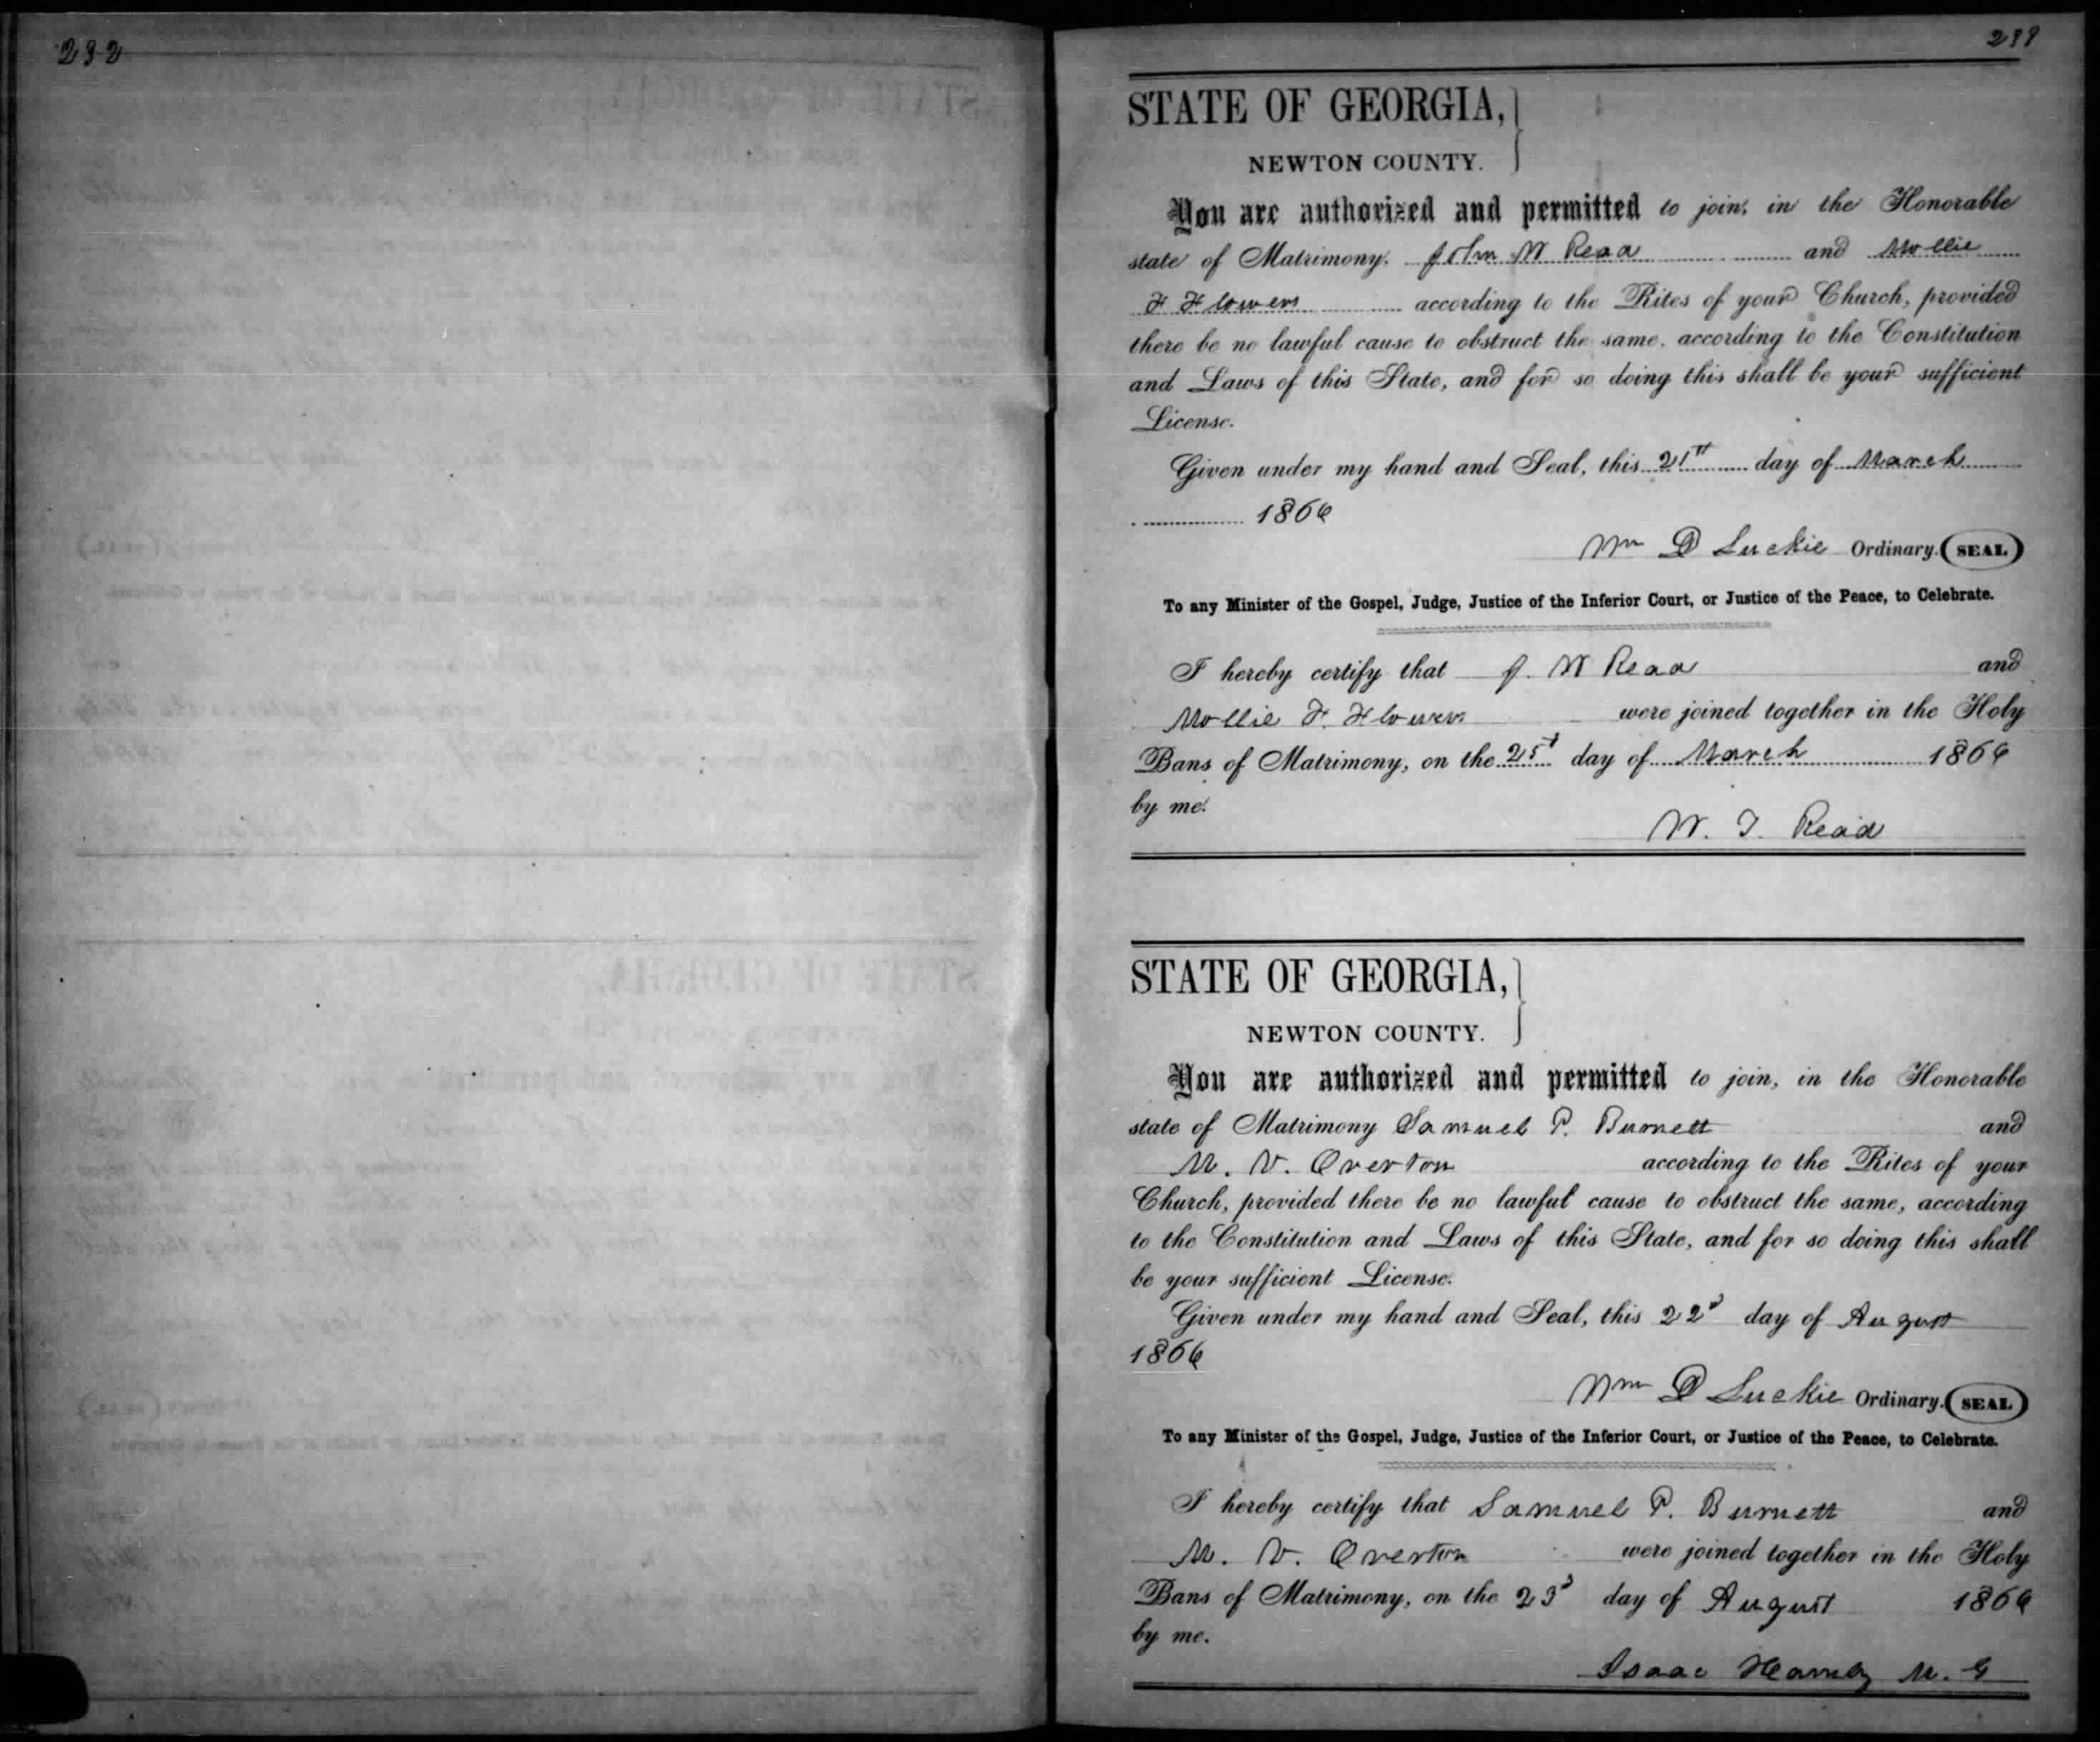 232
STATE OF GEORGIA,
NEWTON COUNTY.
You are authorized and permitted to join, in the Honorable
state of Matrimony. John W Read and Mollie
F Flowers according to the Rites of your Church, provided
there be no lawful cause to obstruct the same. according to the Constitution
and Laws of this State, and for so doing this shall be your sufficient
License.
Given under my hand and Seal, this 21st day of March
1866
Wm D Luckie Ordinary. (SEAL)
To any Minister of the Gospel, Judge, Justice of the Inferior Court, or Justice of the Peace, to Celebrate.
I hereby certify that J. W Read and
Mollie F. Flowers were joined together in the Holy
Bans of Matrimony, on the 25t day of March 1866
by me.
W. T. Read
STATE OF GEORGIA,
NEWTON COUNTY.
You are authorized and permitted to join, in the Honorable
state of Matrimony Samuel P. Burnett and
M. V. Overton according to the Rites of your
Church, provided there be no lawful cause to obstruct the same, according
to the Constitution and Laws of this State, and for so doing this shall
be your sufficient License.
Given under my hand and Seal, this 22d day of August
1866
Wm D Luckie Ordinary. (SEAL)
To any Minister of the Gospel, Judge, Justice of the Inferior Court, or Justice of the Peace, to Celebrate.
I hereby certify that Samuel P. Burnett and
M. V. Overton were joined together in the Holy
Bans of Matrimony, on the 23d day of August 1866
by me.
Isaac M. G